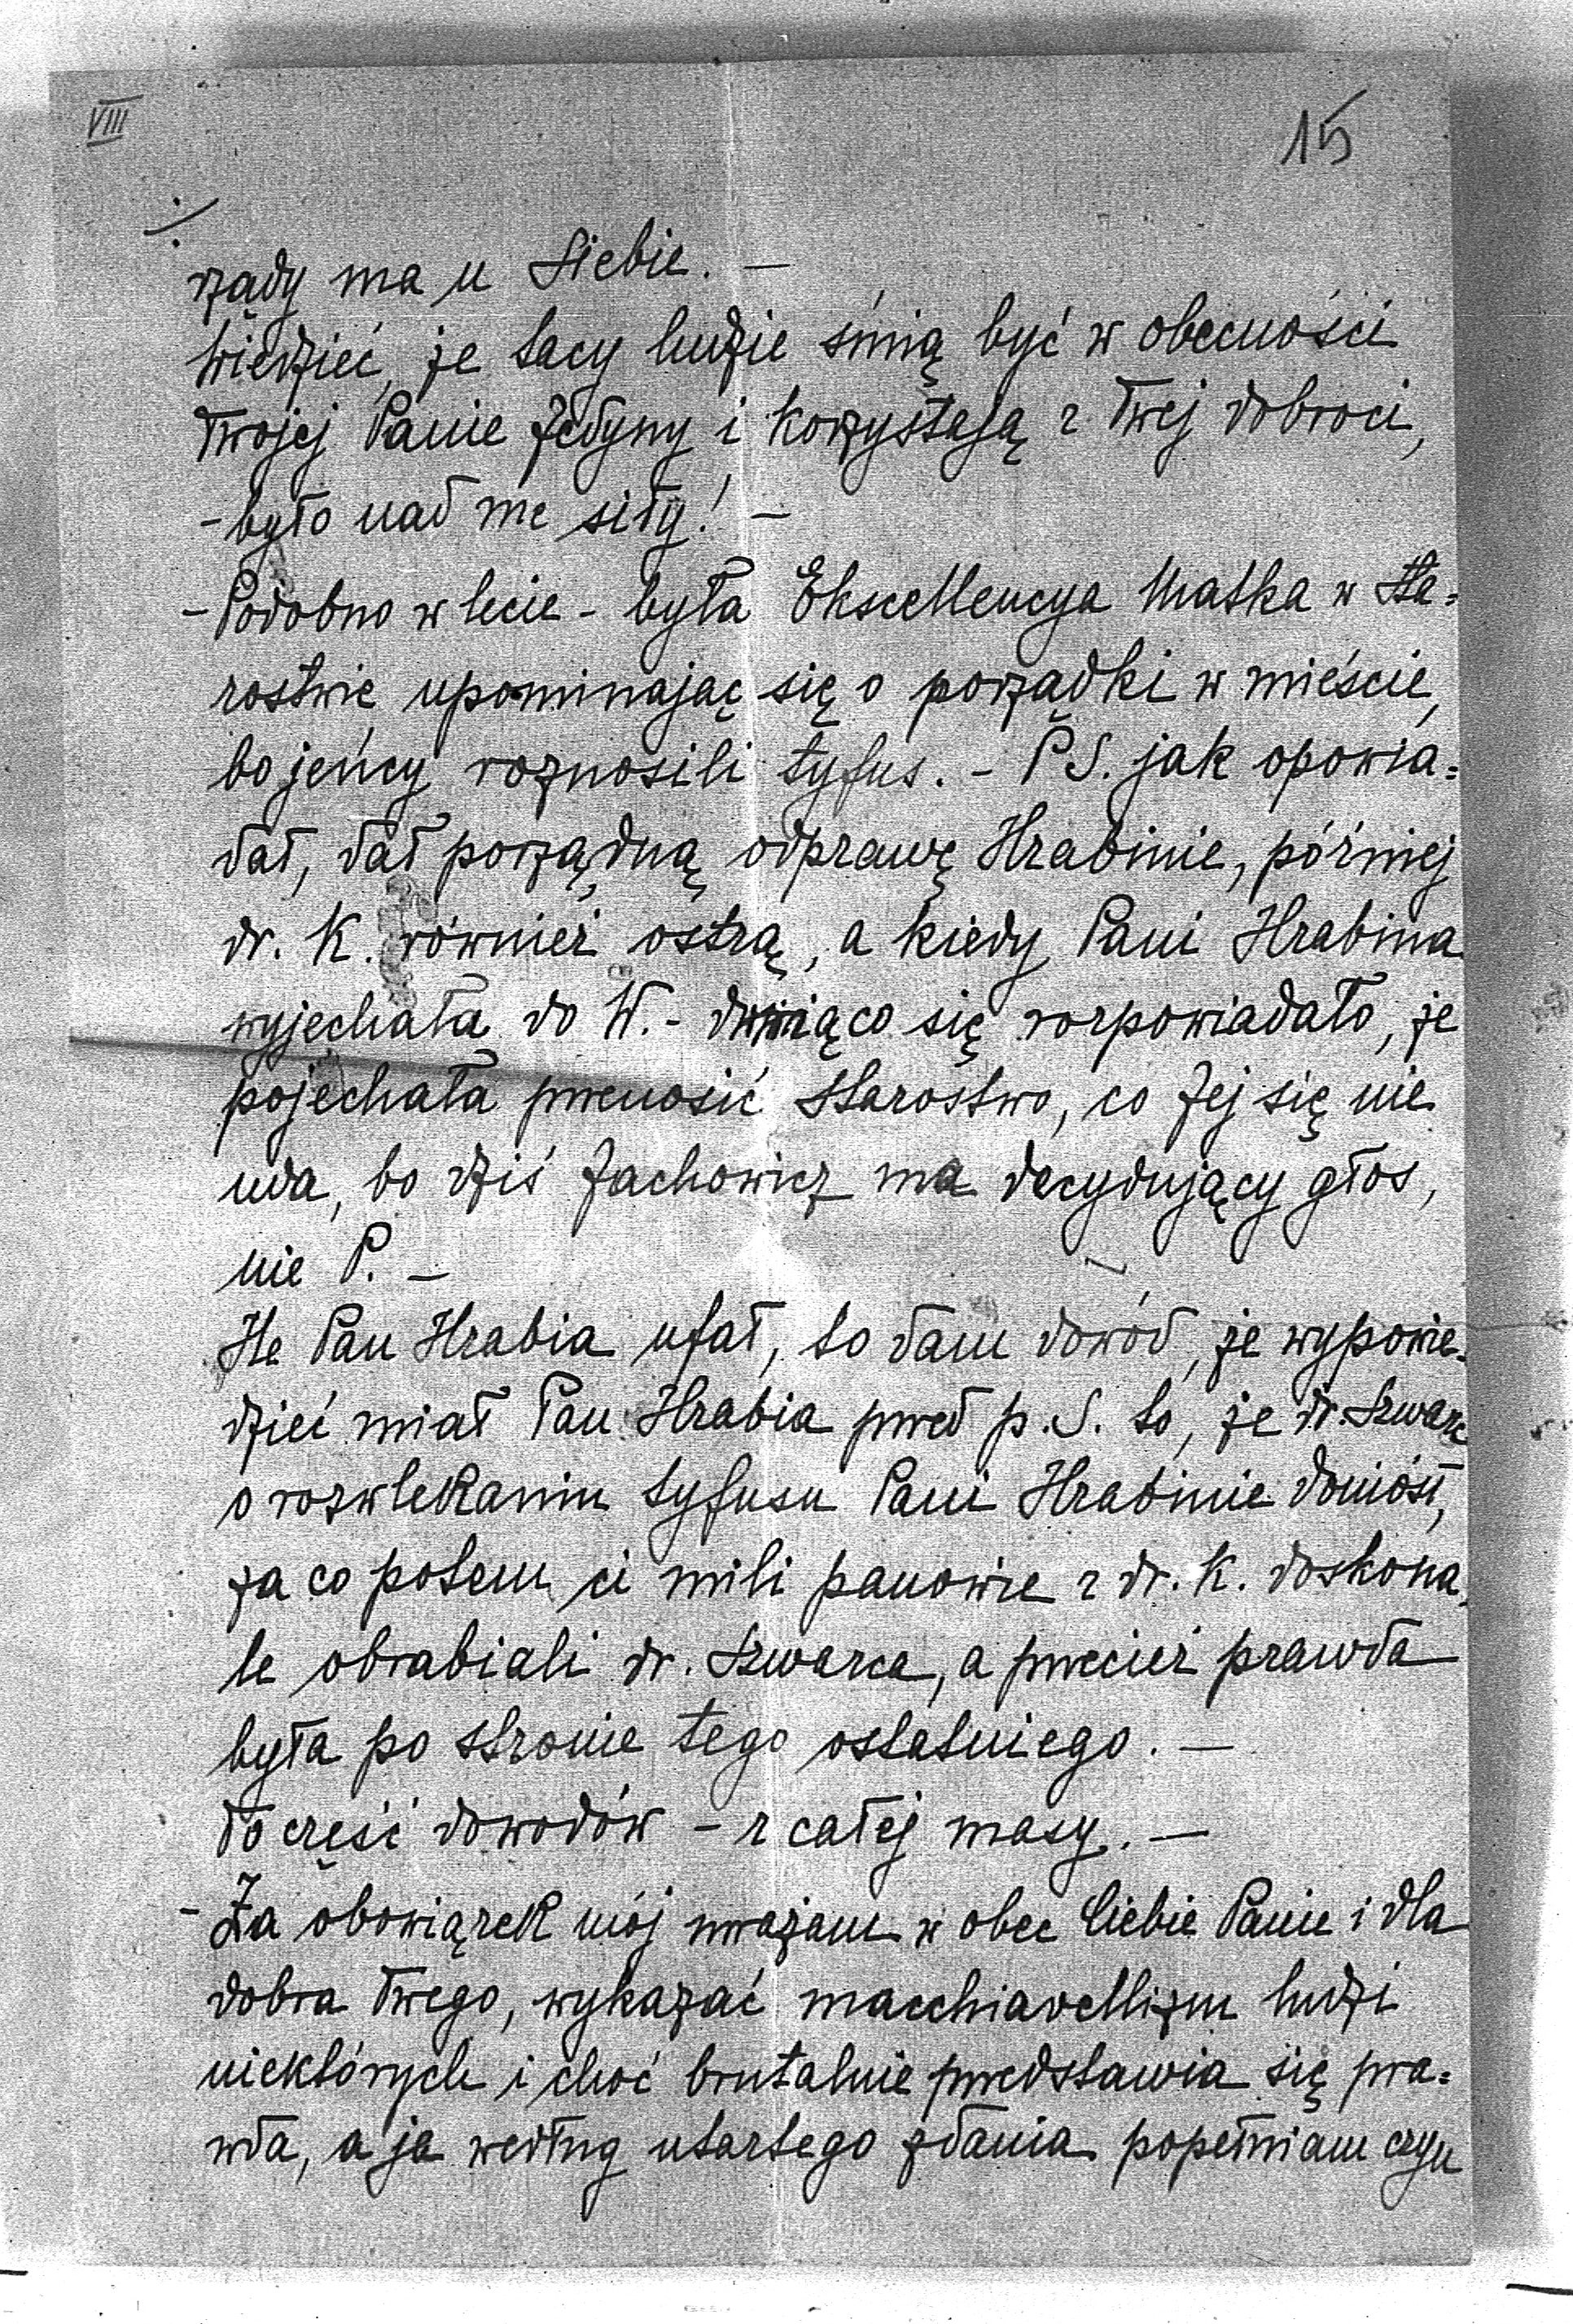 VIII
15
./.
rządy ma u Siebie. —
Wiedzieć, że tacy ludzie śmią być w obecności
Twojej Panie Jedyny i korzystają z Twej dobroci,
- było nad me siły! —
- Podobno w lecie - była Ekscellencya Matka w Sta=
rostwie upominając się o porządki w mieście,
bo jeńcy roznosili tyfus. - P S. jak opowia=
dał, dał porządną odprawę Hrabinie, później
dr. K. również ostrą, a kiedy Pani Hrabina
wyjechała do W. - drwiąco się rozpowiadało, że
pojechała przenosić Starostwo, co Jej się nie
uda, bo dziś Jachowicz ma decydujący głos,
nie P. —
Ile Pan Hrabia ufał, to dam dowód, że wypowie=
dzieć miał Pan Hrabia przed p. S. to, że dr. Szwarc
o rozwlekaniu tyfusu Pani Hrabinie doniósł,
za co potem ci mili panowie z dr. K. doskona=
le obrabiali dr. Szwarca, a przecież prawda
była po stronie tego ostatniego. —
To część dowodów - z całej masy. —
- Za obowiązek mój uważam w obec Ciebie Panie i dla
dobra Twego, wykazać macchiavellizm ludzi
niektórych i choć brutalnie przedstawia się pra=
wda, a ja według utartego zdania popełniam czyn